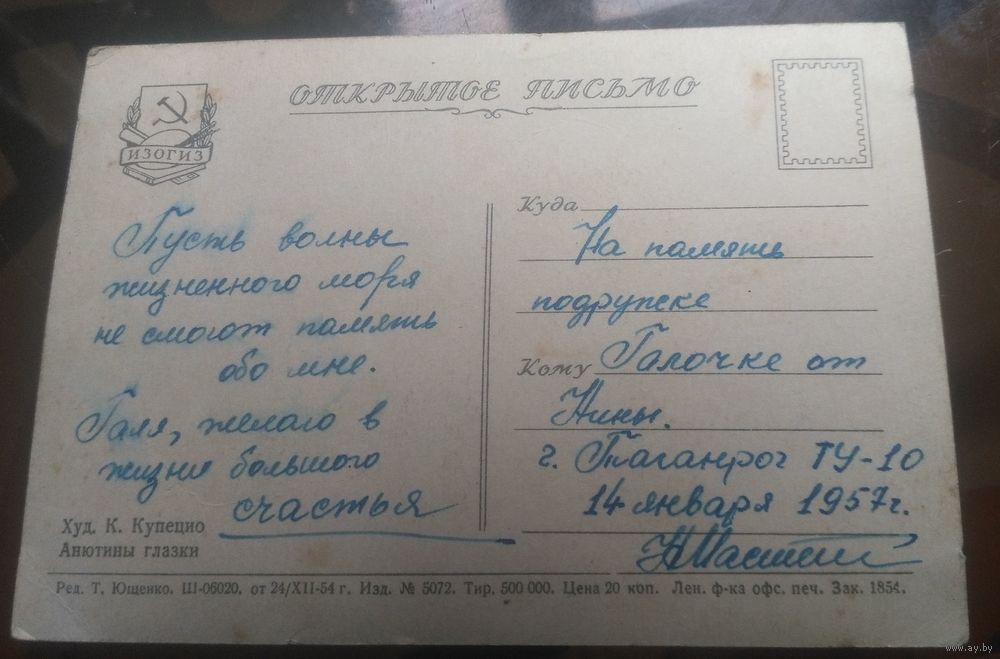 ОТКРЫТОЕ ПИСЬМО
ИЗОГИЗ
Пусть волны
жизненного моря
не смоют память
обо мне.
Галя, желаю в
жизни большого
счастья
Худ. К. Купецио
Анютины глазки
Куда
На память
подружке
Кому Галочке от
Нины.
г. Таганрог ТУ-10
14 января 1957г.
Ред. Т. Ющенко. Ш-06020, от 24/XII-54 г. Изд. № 5072. Тир. 500 000. Цена 20 коп. Лен. ф-ка офс. печ. Зак. 1854.
www.ay.by